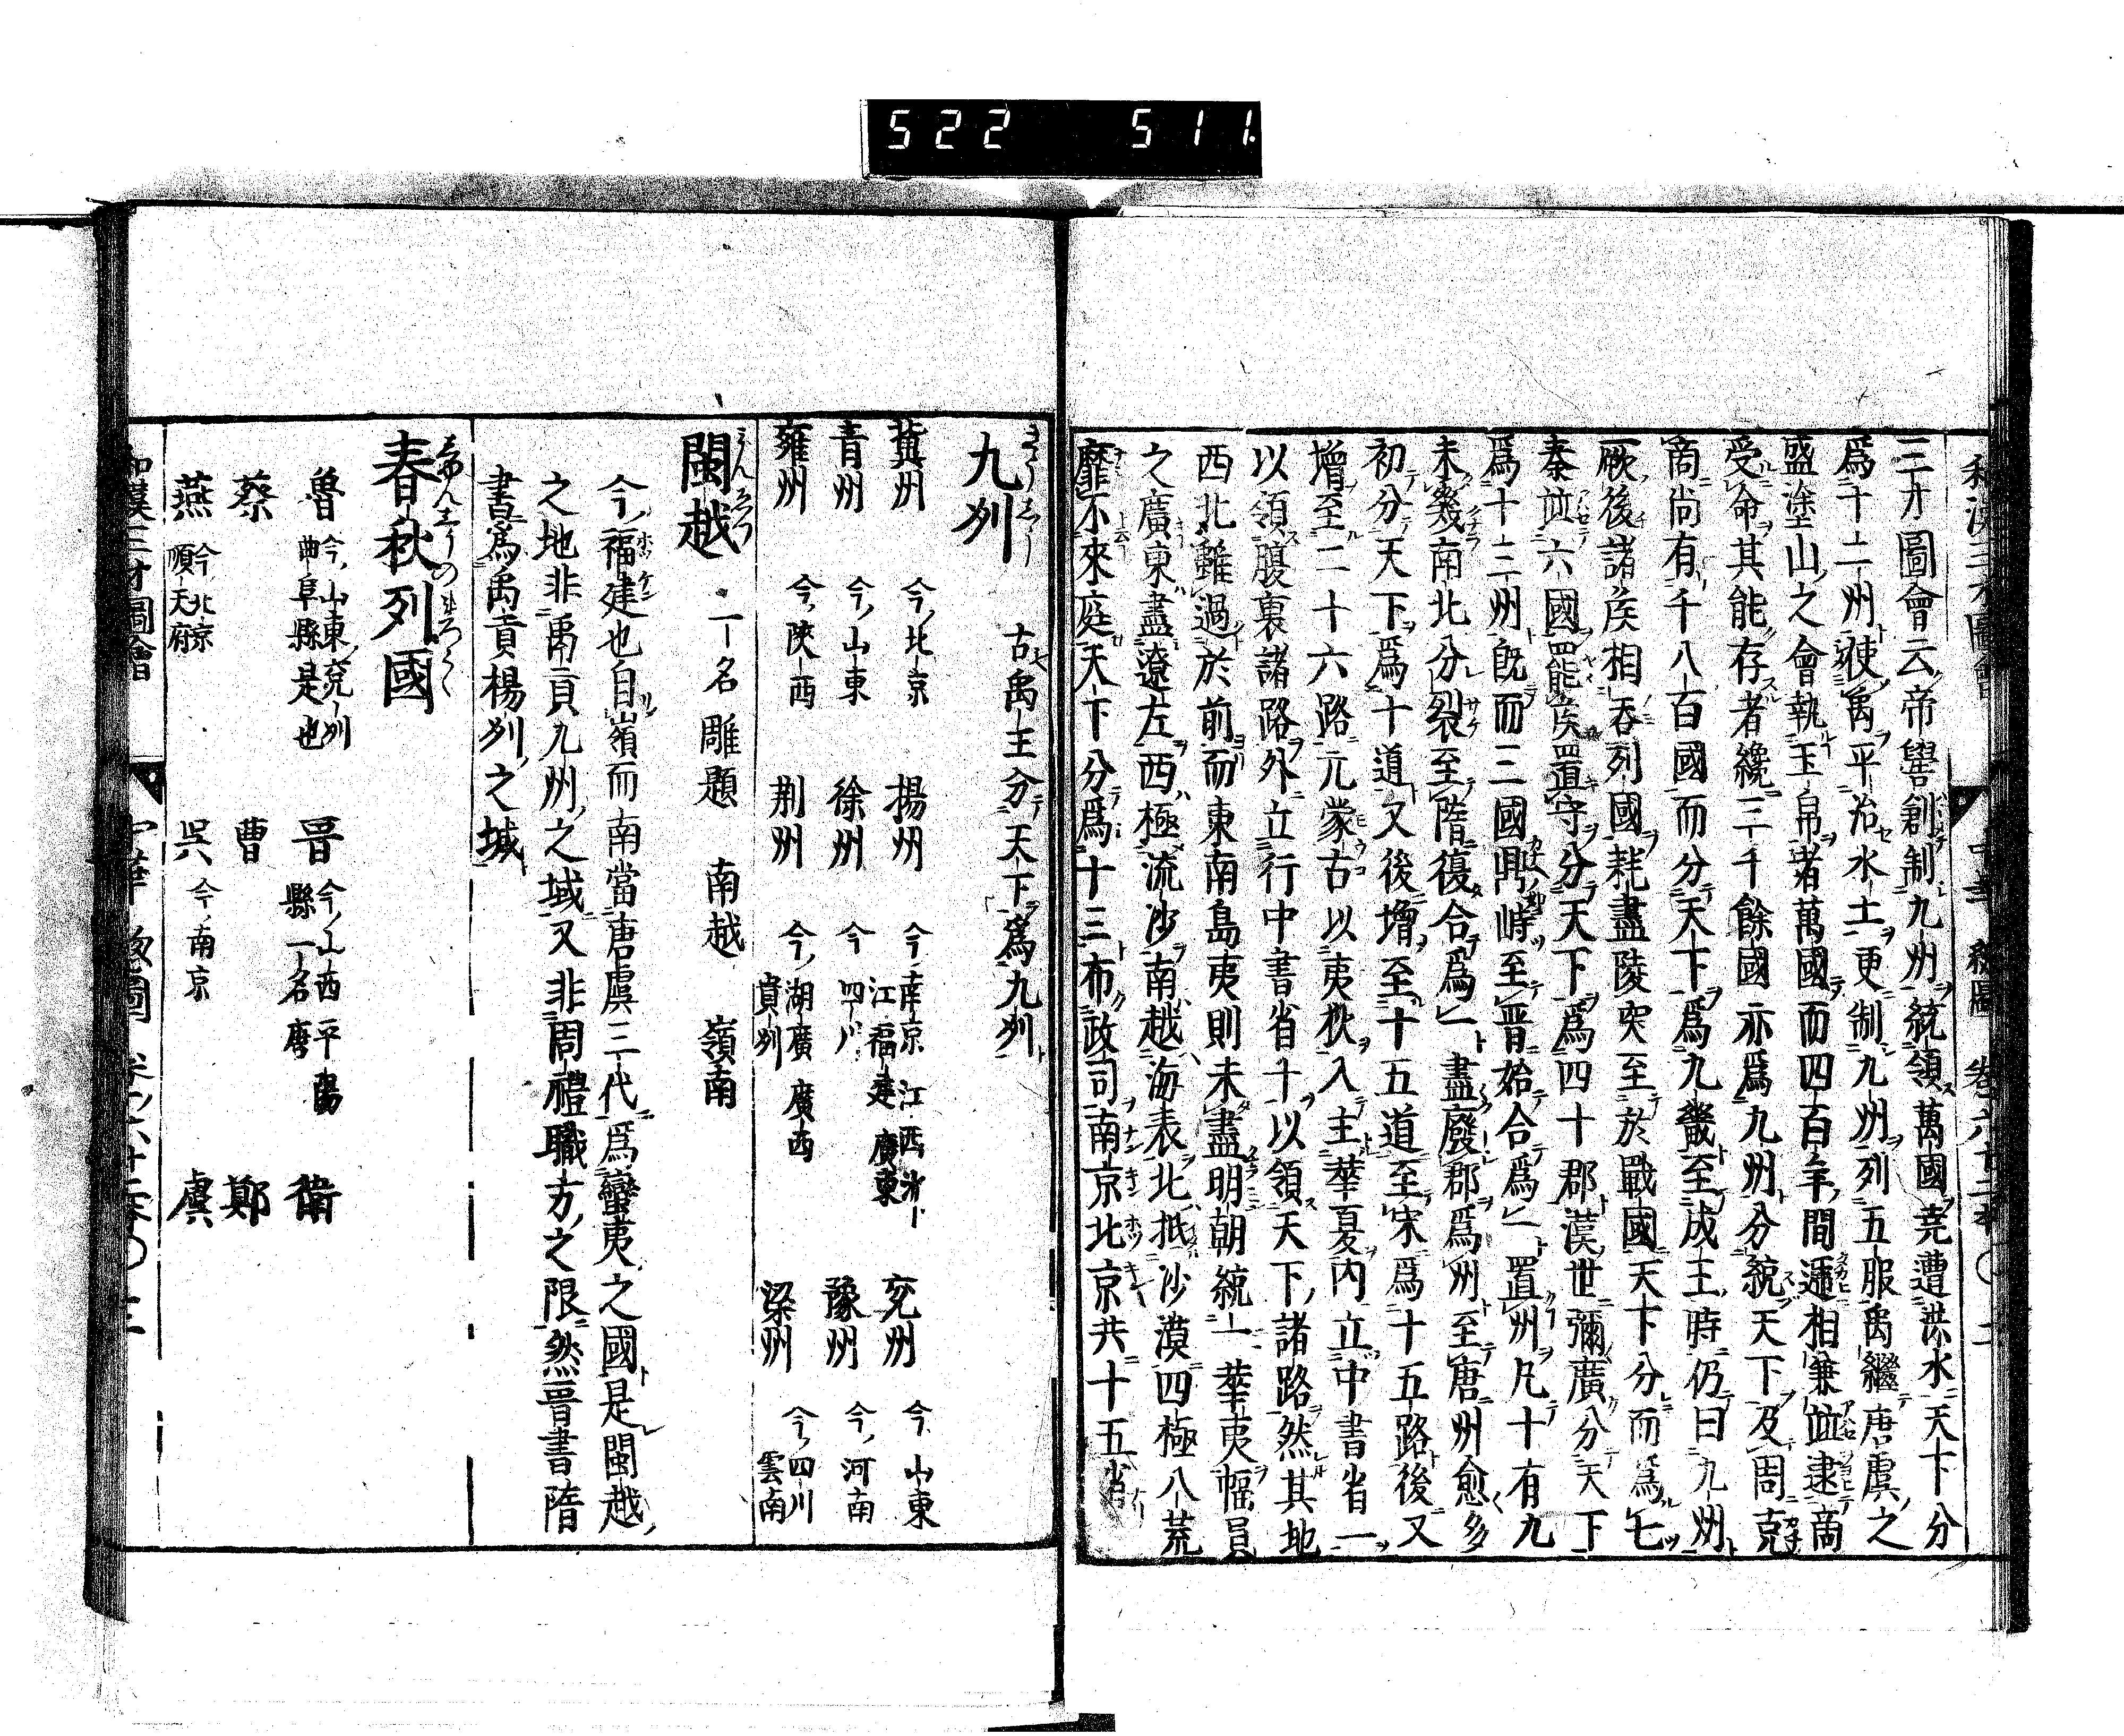 522 511
和漢三才圖會 中華 總圖 卷六十二本 〇 二
三才圖會云帝嚳創制九州統領萬國堯遭洪水天下分
爲十二州使禹平治水土更制九州列五服禹繼唐虞之
盛塗山之會執玉帛者萬國而四百年間遞相兼竝逮商
受命其能存者纔三千餘國亦爲九州分統天下及周克
商尚有千八百國而分天下爲九畿至成王時仍曰九州
厥後諸侯相吞列國耗盡陵突至於戰國天下分而爲七
秦竝六國罷侯置守分天下爲四十郡漢世彌廣分天下
爲十三州旣而三國鼎峙至晋始合爲一置州凡十有九
未幾南北分裂至隋復合爲一盡廢郡爲州至唐州愈多
初分天下爲十道又後增至十五道至宋爲十五路後又
增至二十六路元蒙古以夷狄入主華夏内立中書省一
以領腹裏諸路外立行中書省十以領天下諸路然其地
西北雖過於前而東南島夷則未盡明朝統一華夷幅員
之廣東盡遼左西極流沙南越海表北抵沙漠四極八荒
靡不來庭天下分爲十三布政司南京北京共十五省
九州 古禹王分天下爲九州
冀州 今北京 揚州 今南京 江西 浙 江 福建 廣東 兗州 今山東
青州 今山東 徐州 今四川 豫州 今河南
雍州 今陝西 荆州 今湖廣 廣西 貴州 梁州 今四川 雲南
閩越 一名雕題 南越 嶺南
今福建也自嶺而南當唐虞三代爲蠻夷之國是閩越
之地非禹貢九州之域又非周禮職方之限然晋書隋
書爲禹貢楊州之域
春秋列國
魯 今山東兗州 曲阜縣是也 晋 今山西平陽 縣一名唐 衛
蔡 曹 鄭
燕 今北京 順天府 吳 今南京 虞
和漢三才圖會 中華總圖 卷六十二本 〇 三